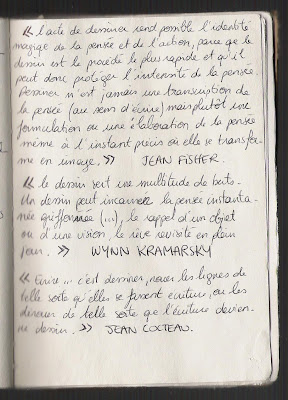 « l'acte de dessiner rend possible l'identité
magique de la pensée et de l'action, parce que le
dessin est le procédé le plus rapide et qu'il
peut donc protéger l'intensité de la pensée.
Dessiner n'est jamais une transcription de
la pensée (au sens d'écrire) mais plutôt une
formulation ou une élaboration de la pensée
même à l'instant précis où elle se transfor-
me en image. » JEAN FISHER.
« le dessin sert une multitude de buts.
Un dessin peut incarner la pensée instanta-
née griffonnée (...), le rappel d'un objet
ou d'une vision, le rêve revisité en plein
jour. » WYNN KRAMARSKY
« Ecrire... c'est dessiner, nouer les lignes de
telle sorte qu'elles se fassent écriture, ou les
dénouer de telle sorte que l'écriture devien-
ne dessin. » JEAN COCTEAU.